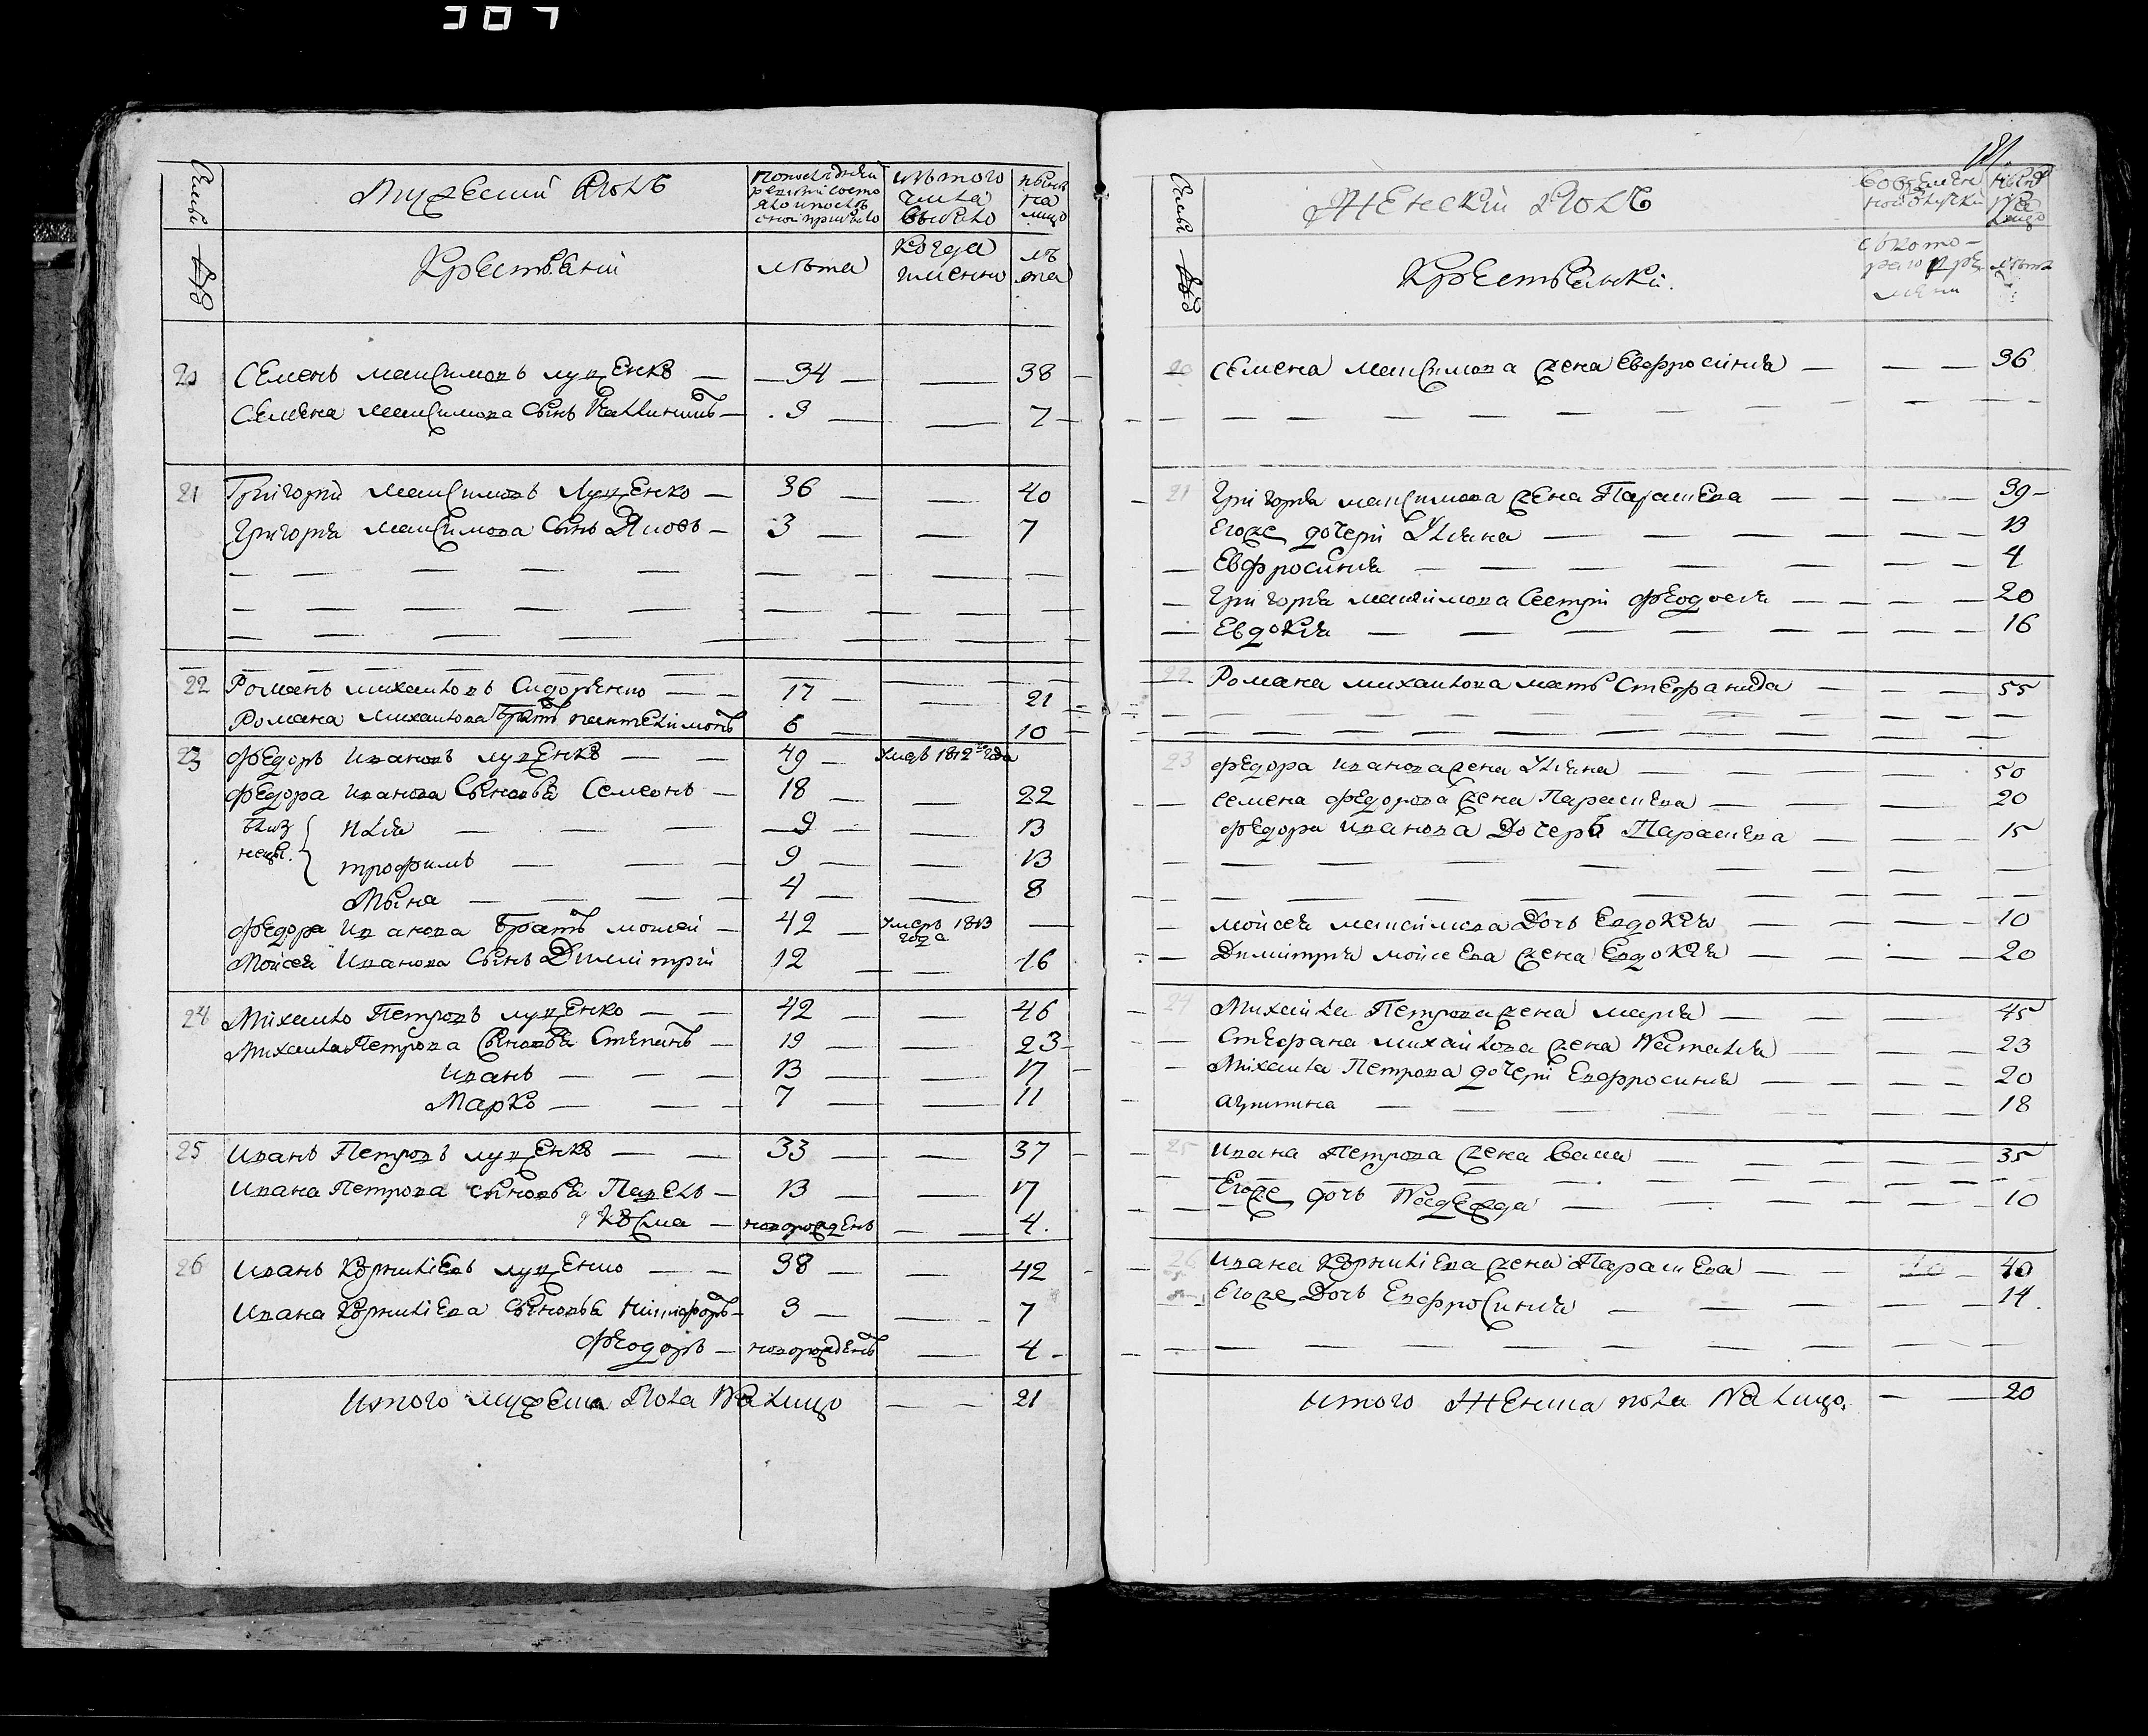 307
Семьи
Мужеский полъ
По последней ревизии состояло и после оной прибыло
Изъ того числа выбыло
Ныне на лицо
№
Крестьяни
Лета
Когда именно
Лета
20 Семенъ Максимовъ Луценко — 34 — — 38
Семена Максимова сынъ — 3 — — 7
21 Григорий Максимовъ Луценко — 36 — — 40
Григория Максимова сынъ Яковъ — 3 — — 7
22 Романъ Михайловъ Сидоренко — 17 — — 21
Романа Михайлова братъ Пантелимонъ 6 — — 10
23 Федоръ Ивановъ Луценко — 49 — Умеръ 1812го года
Федора Иванова сыновья Семеонъ — 18 — — 22
близнецы. Илия — 9 — — 13
Трофимъ — 9 — — 13
Мина — 4 — — 8
Федора Иванова братъ Моисей — 42 — Умеръ 1813 года —
Мойсея Иванова сынъ Димитрий 12 — — 16
24 Михайло Петровъ Луценко — 42 — — 46
Михайла Петрова сыновья Степанъ — 19 — — 23
Иванъ — 13 — — 17
Марко — 7 — — 11
25 Иванъ Петровъ Луценко — 33 — — 37
Ивана Петрова сыновья Павелъ — 13 — — 17
Козма — новорожденъ — 4.
26 Иванъ Корнилиевъ Луценко — 38 — — 42
Ивана Корнилиева сыновья Никифоръ — 3 — — 7
Феодоръ — новорожденъ — 4
Итого мужеска пола на лицо — — 21
Семьи
Женский полъ
Во временной отлучки
Ныне на лицо
№
Крестьянки.
Съ которого времени
Лета
20 Семена Максимова жена Евфросиния — — — 36
21 Григория Максимова жена Параскева — — — 39
Егоже дочери Улияна — — — 13
Евфросиния — — — 4
Григория Максимова сестри Феодосия — — — 20
Евдокия — — — 16
22 Романа Михайлова мать Стефанида — — — 55
23 Федора Иванова жена Улияна — — — 50
Семена Федорова жена Параскева — — — 20
Федора Иванова дочерь Параскева — — — 15
Мойсея Максимова дочь Евдокия — — — 10
Димитрия Мойсеева жена Евдокия — — — 20
24 Михайла Петрова жена Мария — — — 45
Стефана Михайлова жена Наталия — — — 23
Михайла Петрова дочери Евфросиния — — — 20
Агрипина — — — 18
25 Ивана Петрова жена Васса — — — 35
Егоже дочь Надежда — — — 10
26 Ивана Корнилиева жена Параскева — — — 40
Егоже дочь Евфросиния — — — 14.
Итого женска пола на лицо. — — 20